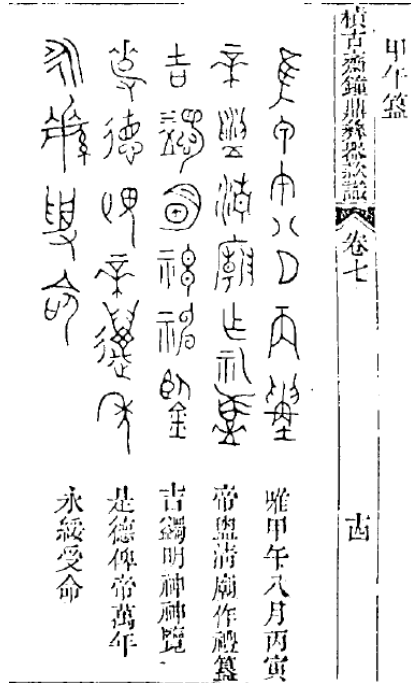 甲午簋
積古齋鐘鼎彝器款識 卷七 十四
唯甲午八月丙寅
帝盥清廟作禮簋
吉蠲明神神覽
是德俾帝萬年
永綏受命